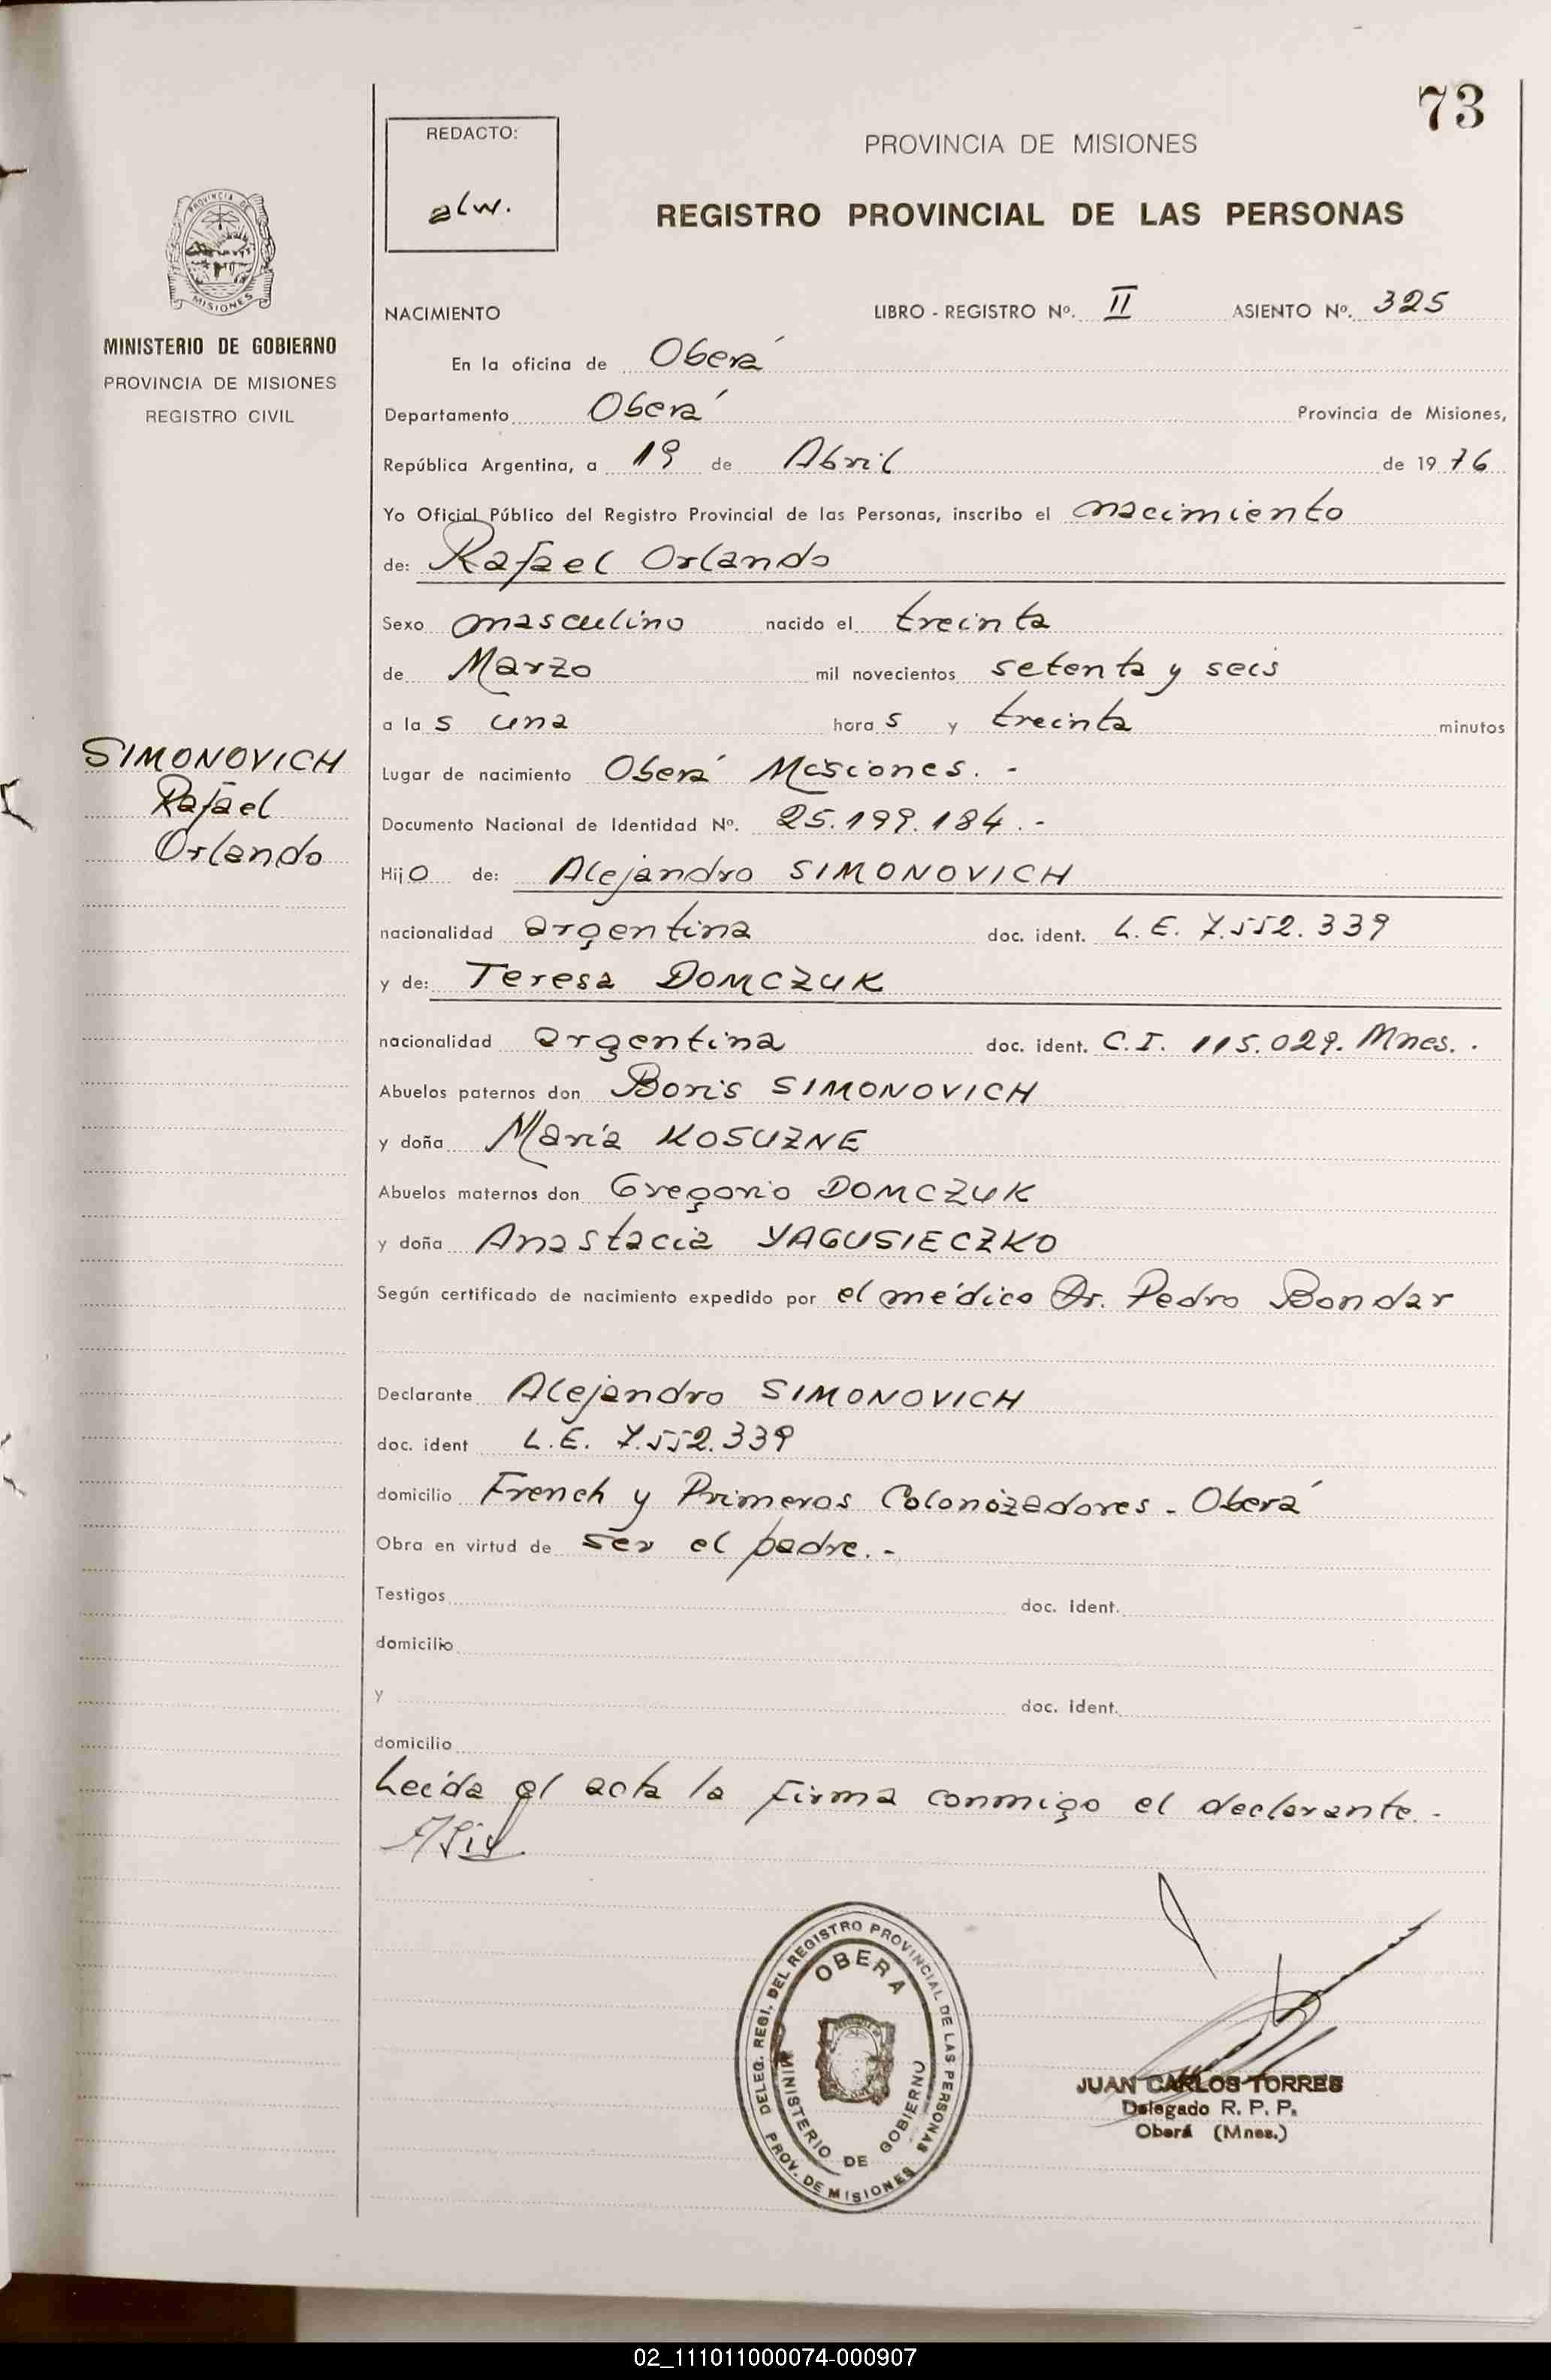 73
REDACTO:
alw.
PROVINCIA DE MISIONES
REGISTRO PROVINCIAL DE LAS PERSONAS
PROVINCIA DE
MISIONES
MINISTERIO DE GOBIERNO
PROVINCIA DE MISIONES
REGISTRO CIVIL
NACIMIENTO LIBRO - REGISTRO Nº. II ASIENTO Nº. 325
En la oficina de Oberá
Departamento Oberá Provincia de Misiones,
República Argentina, a 19 de Abril de 1976
Yo Oficial Público del Registro Provincial de las Personas, inscribo el nacimiento
de: Rafael Orlando
Sexo masculino nacido el treinta
de Marzo mil novecientos setenta y seis
a las una horas y treinta minutos
SIMONOVICH
Rafael
Orlando
Lugar de nacimiento Oberá Misiones. -
Documento Nacional de Identidad Nº. 25.199.184.-
Hijo de: Alejandro SIMONOVICH
nacionalidad argentina doc. ident. L.E. 7.552.339
y de: Teresa DOMCZUK
nacionalidad argentina doc. ident. C.I. 115.029. Mnes. .
Abuelos paternos don Boris SIMONOVICH
y doña María KOSUZNE
Abuelos maternos don Gregorio DOMCZUK
y doña Anastacia YAGUSIECZKO
Según certificado de nacimiento expedido por el médico Dr. Pedro Bondar
Declarante Alejandro SIMONOVICH
doc. ident L.E. 7.552.339
domicilio French y Primeros Colonizadores - Oberá
Obra en virtud de ser el padre.-
Testigos doc. ident.
domicilio
y doc. ident.
domicilio
Leída el acta la firma conmigo el declarante.-
DELEG. REGI. DEL REGISTRO PROVINCIAL DE LAS PERSONAS
PROV. DE MISIONES
OBERA
MINISTERIO DE GOBIERNO
JUAN CARLOS TORRES
Delegado R. P. P.
Oberá (Mnes.)
02_111011000074-000907